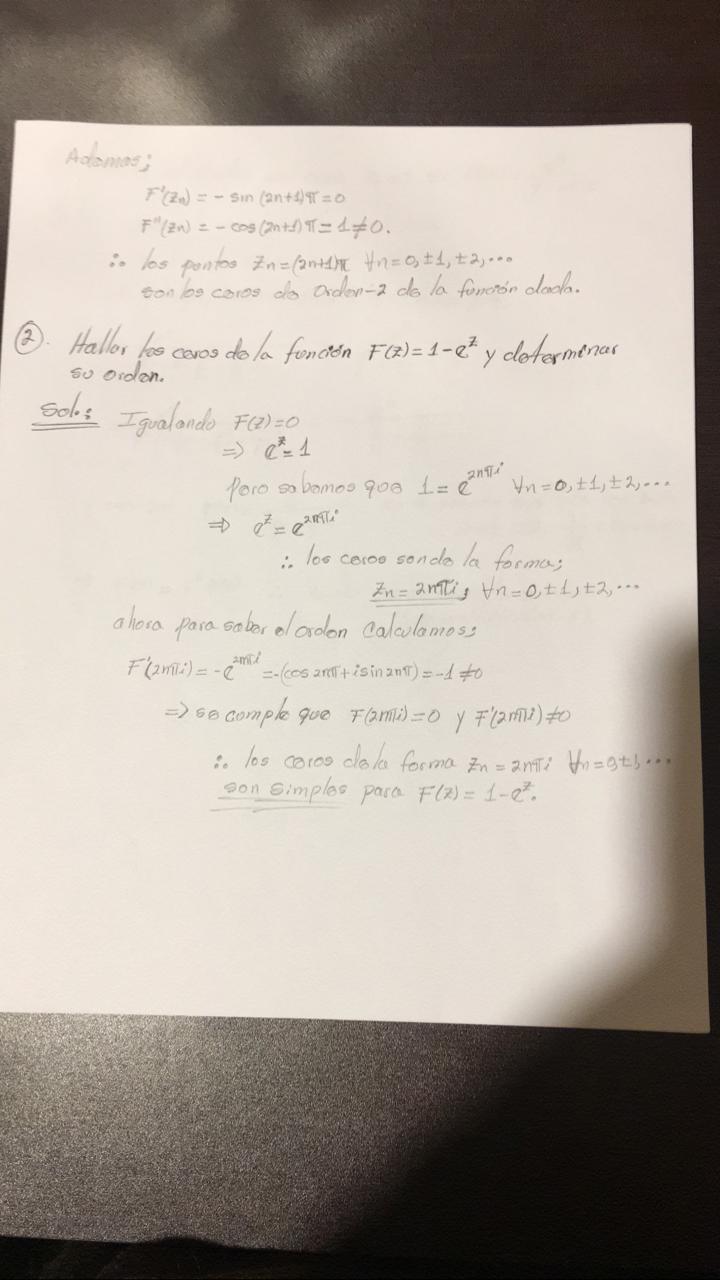 Ademas;
F'(zn) = - sin (2n+1)π = 0
F''(zn) = - cos (2n+1) π = 1 ≠ 0.
∴ los pontos zn = (2n+1)π ∀n = 0, ±1, ±2, ...
son los ceros de Orden-2 de la función dada.
②. Hallar los ceros de la función F(z) = 1 - e^z y determinar
su orden.
Sol.: Igualando F(z) = 0
⇒ e^z = 1
Pero sabemos que 1 = e^{2nπi} ∀n = 0, ±1, ±2, ...
⇒ e^z = e^{2nπi}
∴ los ceros son de la forma;
zn = 2nπi, ∀n = 0, ±1, ±2, ...
ahora para saber el orden calculamos;
F'(2nπi) = -e^{2nπi} = -(cos 2nπ + i sin 2nπ) = -1 ≠ 0
⇒ se cumple que F(2nπi) = 0 y F'(2nπi) ≠ 0
∴ los ceros de la forma zn = 2nπi ∀n = 0, ±1, ...
son simples para F(z) = 1 - e^z.